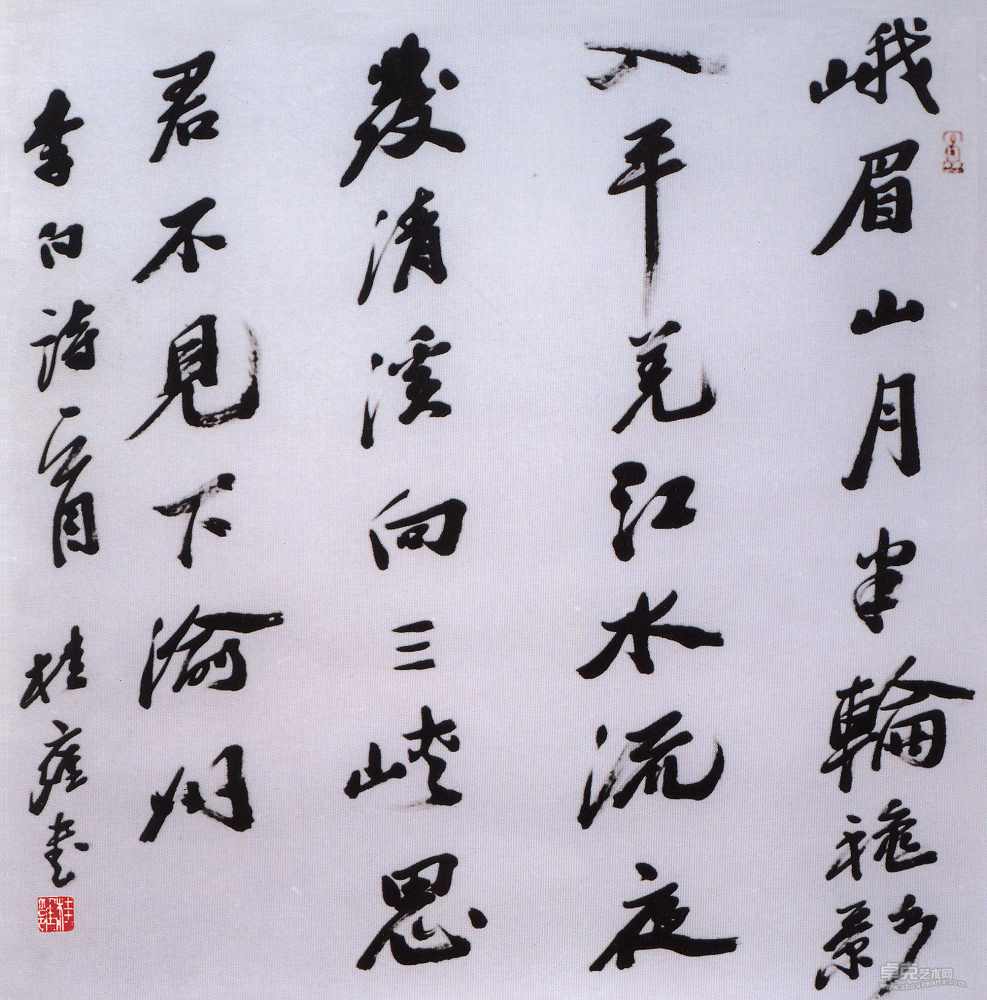 峨眉山月半輪秋影
入平羌江水流夜
發清溪向三峽思
君不見下渝州
李白詩一首 桂雍書
卓克艺术网